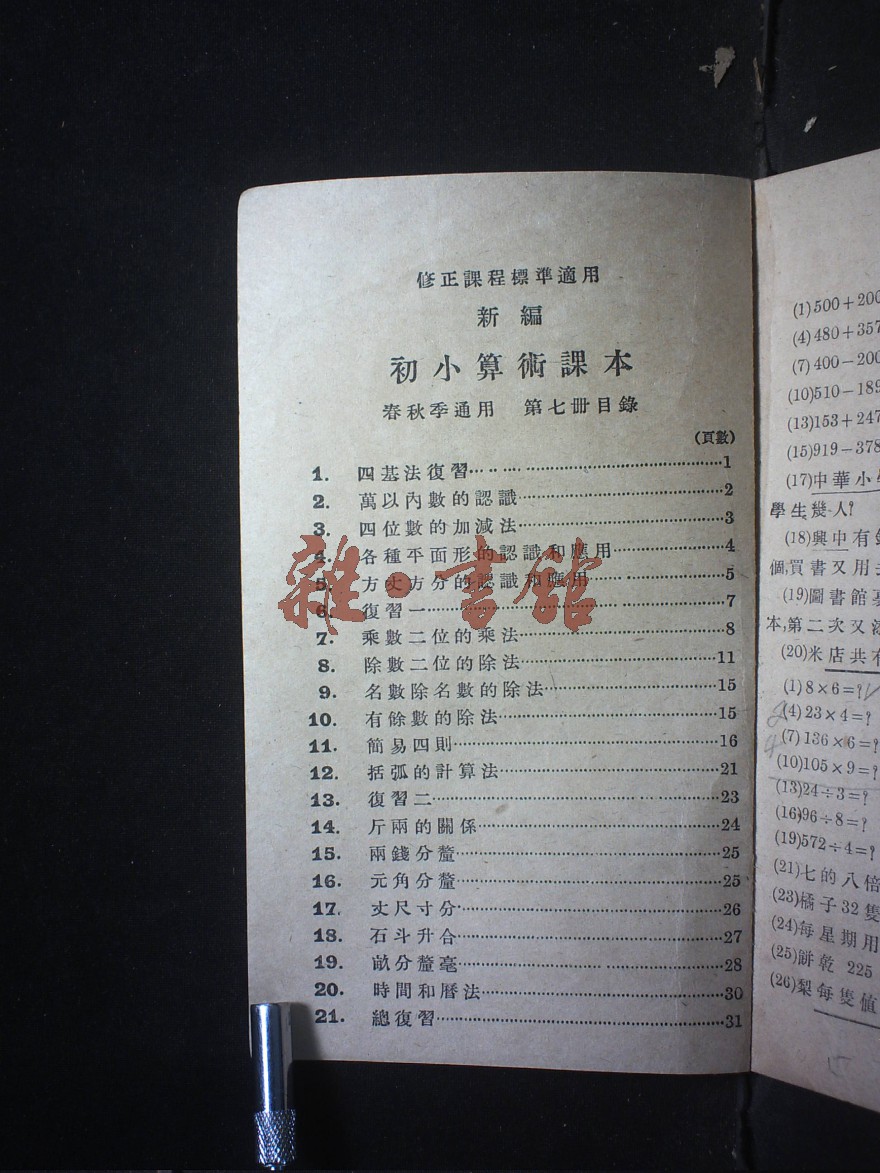 修正課程標準適用
新編
初小算術課本
春秋季通用 第七册目錄
(頁數)
1. 四基法復習…1
2. 萬以內數的認識…2
3. 四位數的加減法…3
4. 各種平面形的認識和應用…4
5. 方丈方分的認識和應用…5
6. 復習一…7
7. 乘數二位的乘法…8
8. 除數二位的除法…11
9. 名數除名數的除法…15
10. 有餘數的除法…15
11. 簡易四則…16
12. 括弧的計算法…21
13. 復習二…23
14. 斤兩的關係…24
15. 兩錢分釐…25
16. 元角分釐…25
17. 丈尺寸分…26
18. 石斗升合…27
19. 畝分釐毫…28
20. 時間和曆法…30
21. 總復習…31
雜·書館
(1)500+200
(4)480+357
(7)400-200
(10)510-189
(13)153+247
(15)919-378
(17)中華小
學生幾人?
(18)興中有
個,買書又用
(19)圖書館
本,第二次又
(20)米店共有
(1)8×6=?
(4)23×4=?
(7)136×6=?
(10)105×9=?
(13)24÷3=?
(16)96÷8=?
(19)572÷4=?
(21)七的八倍
(23)橘子32隻
(24)每星期用
(25)餅乾 225
(26)梨每隻值